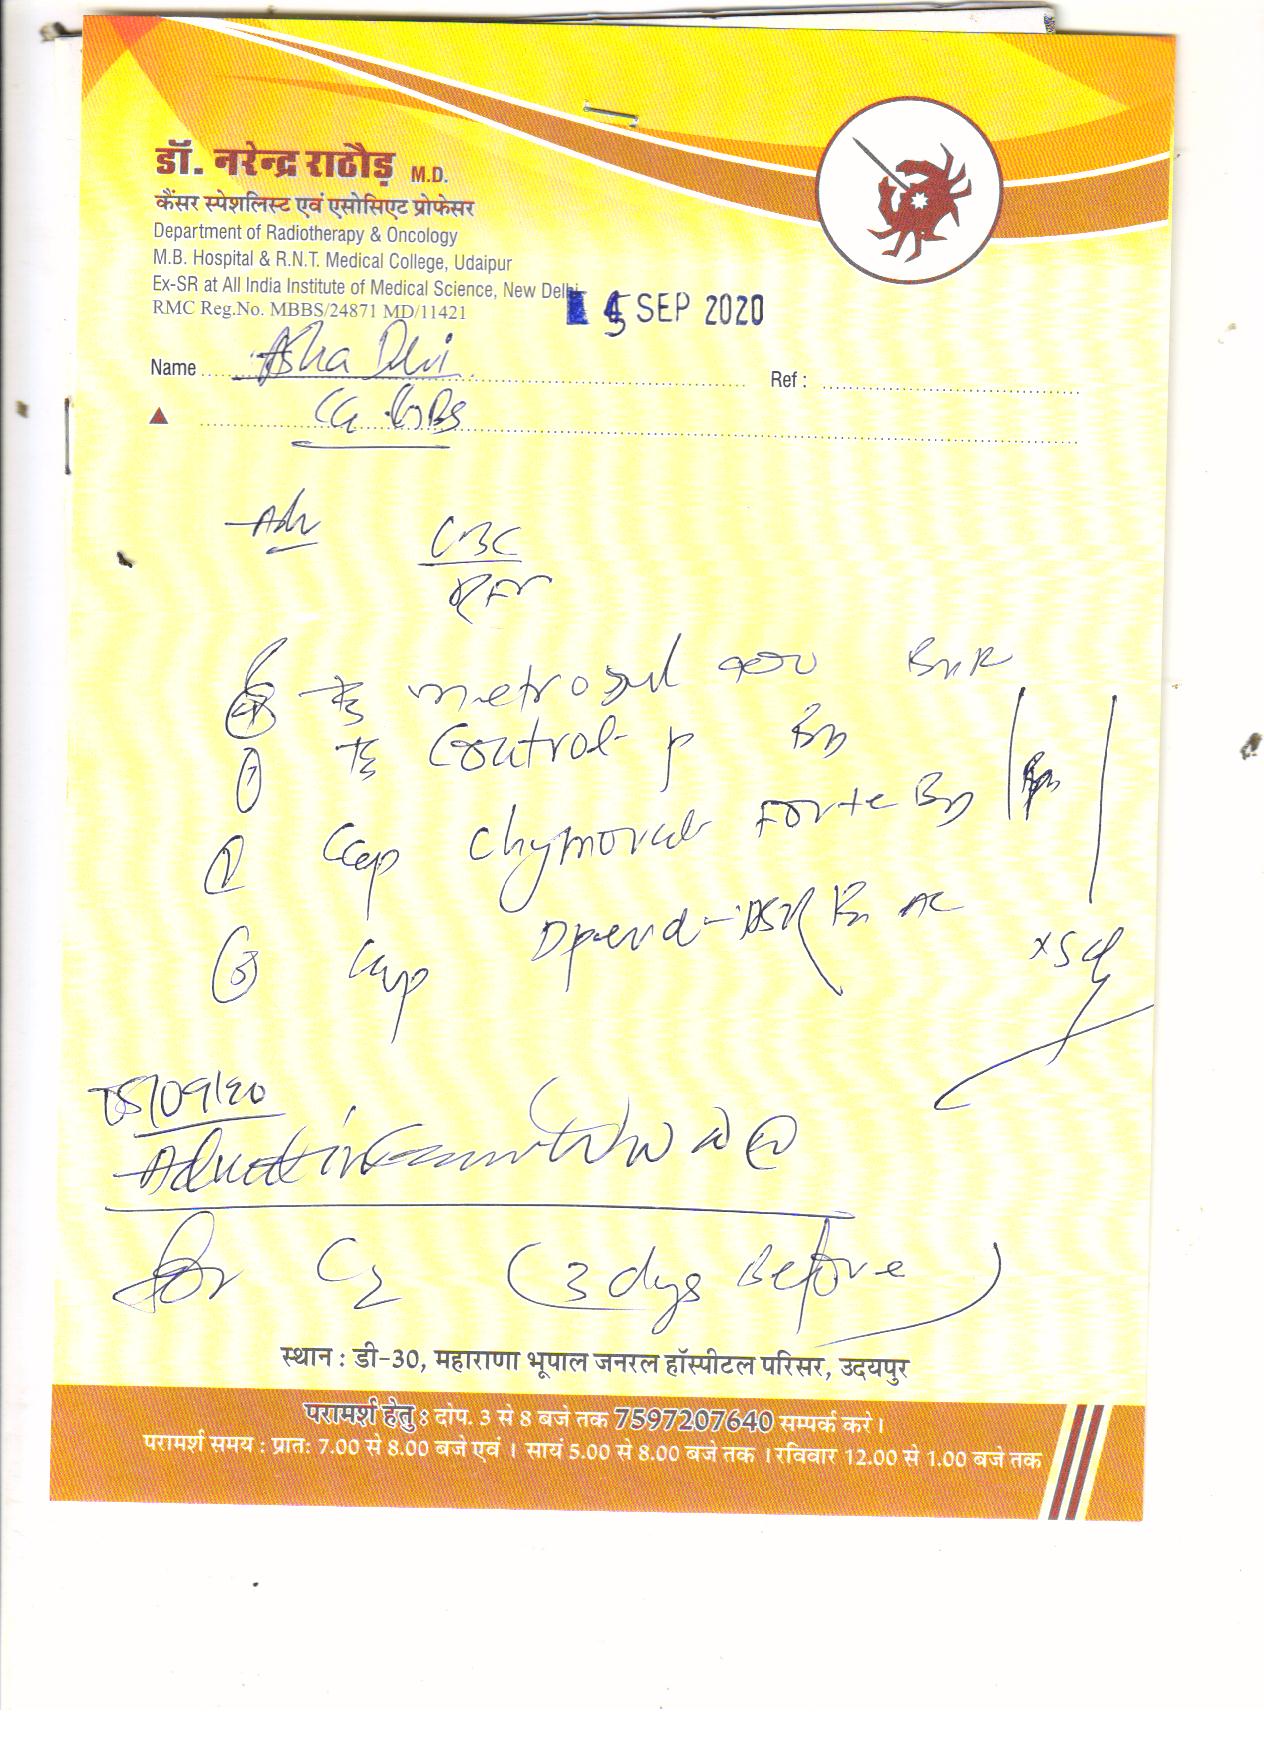 डॉ. नरेन्द्र राठौड़ M.D.
कैंसर स्पेशलिस्ट एवं एसोसिएट प्रोफेसर
Department of Radiotherapy & Oncology
M.B. Hospital & R.N.T. Medical College, Udaipur
Ex-SR at All India Institute of Medical Science, New Delhi
RMC Reg.No. MBBS/24871 MD/11421
5 SEP 2020
Name Asha Devi Ref :
Adv CBC
RFT
metrogyl 400
Control-P BD
Cap Chymoral Forte BD
Cap Dpend-DSR AC
x5d
05/09/20
for C2 (3 dys Before)
स्थान : डी-30, महाराणा भूपाल जनरल हॉस्पीटल परिसर, उदयपुर
परामर्श हेतु : दोप. 3 से 8 बजे तक 7597207640 सम्पर्क करे ।
परामर्श समय : प्रातः 7.00 से 8.00 बजे एवं । सायं 5.00 से 8.00 बजे तक । रविवार 12.00 से 1.00 बजे तक